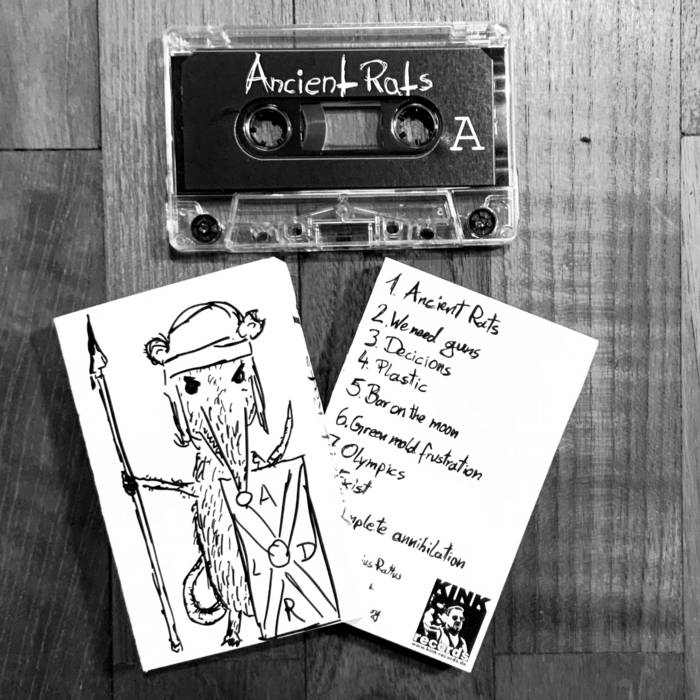 Ancient Rats
A
A
L D
R
1. Ancient Rats
2. We need guns
3. Decicions
4. Plastic
5. Bar on the moon
6. Green mold frustration
7 Olympics
Exist
annihilation
KINK
records
www.kink-records.de